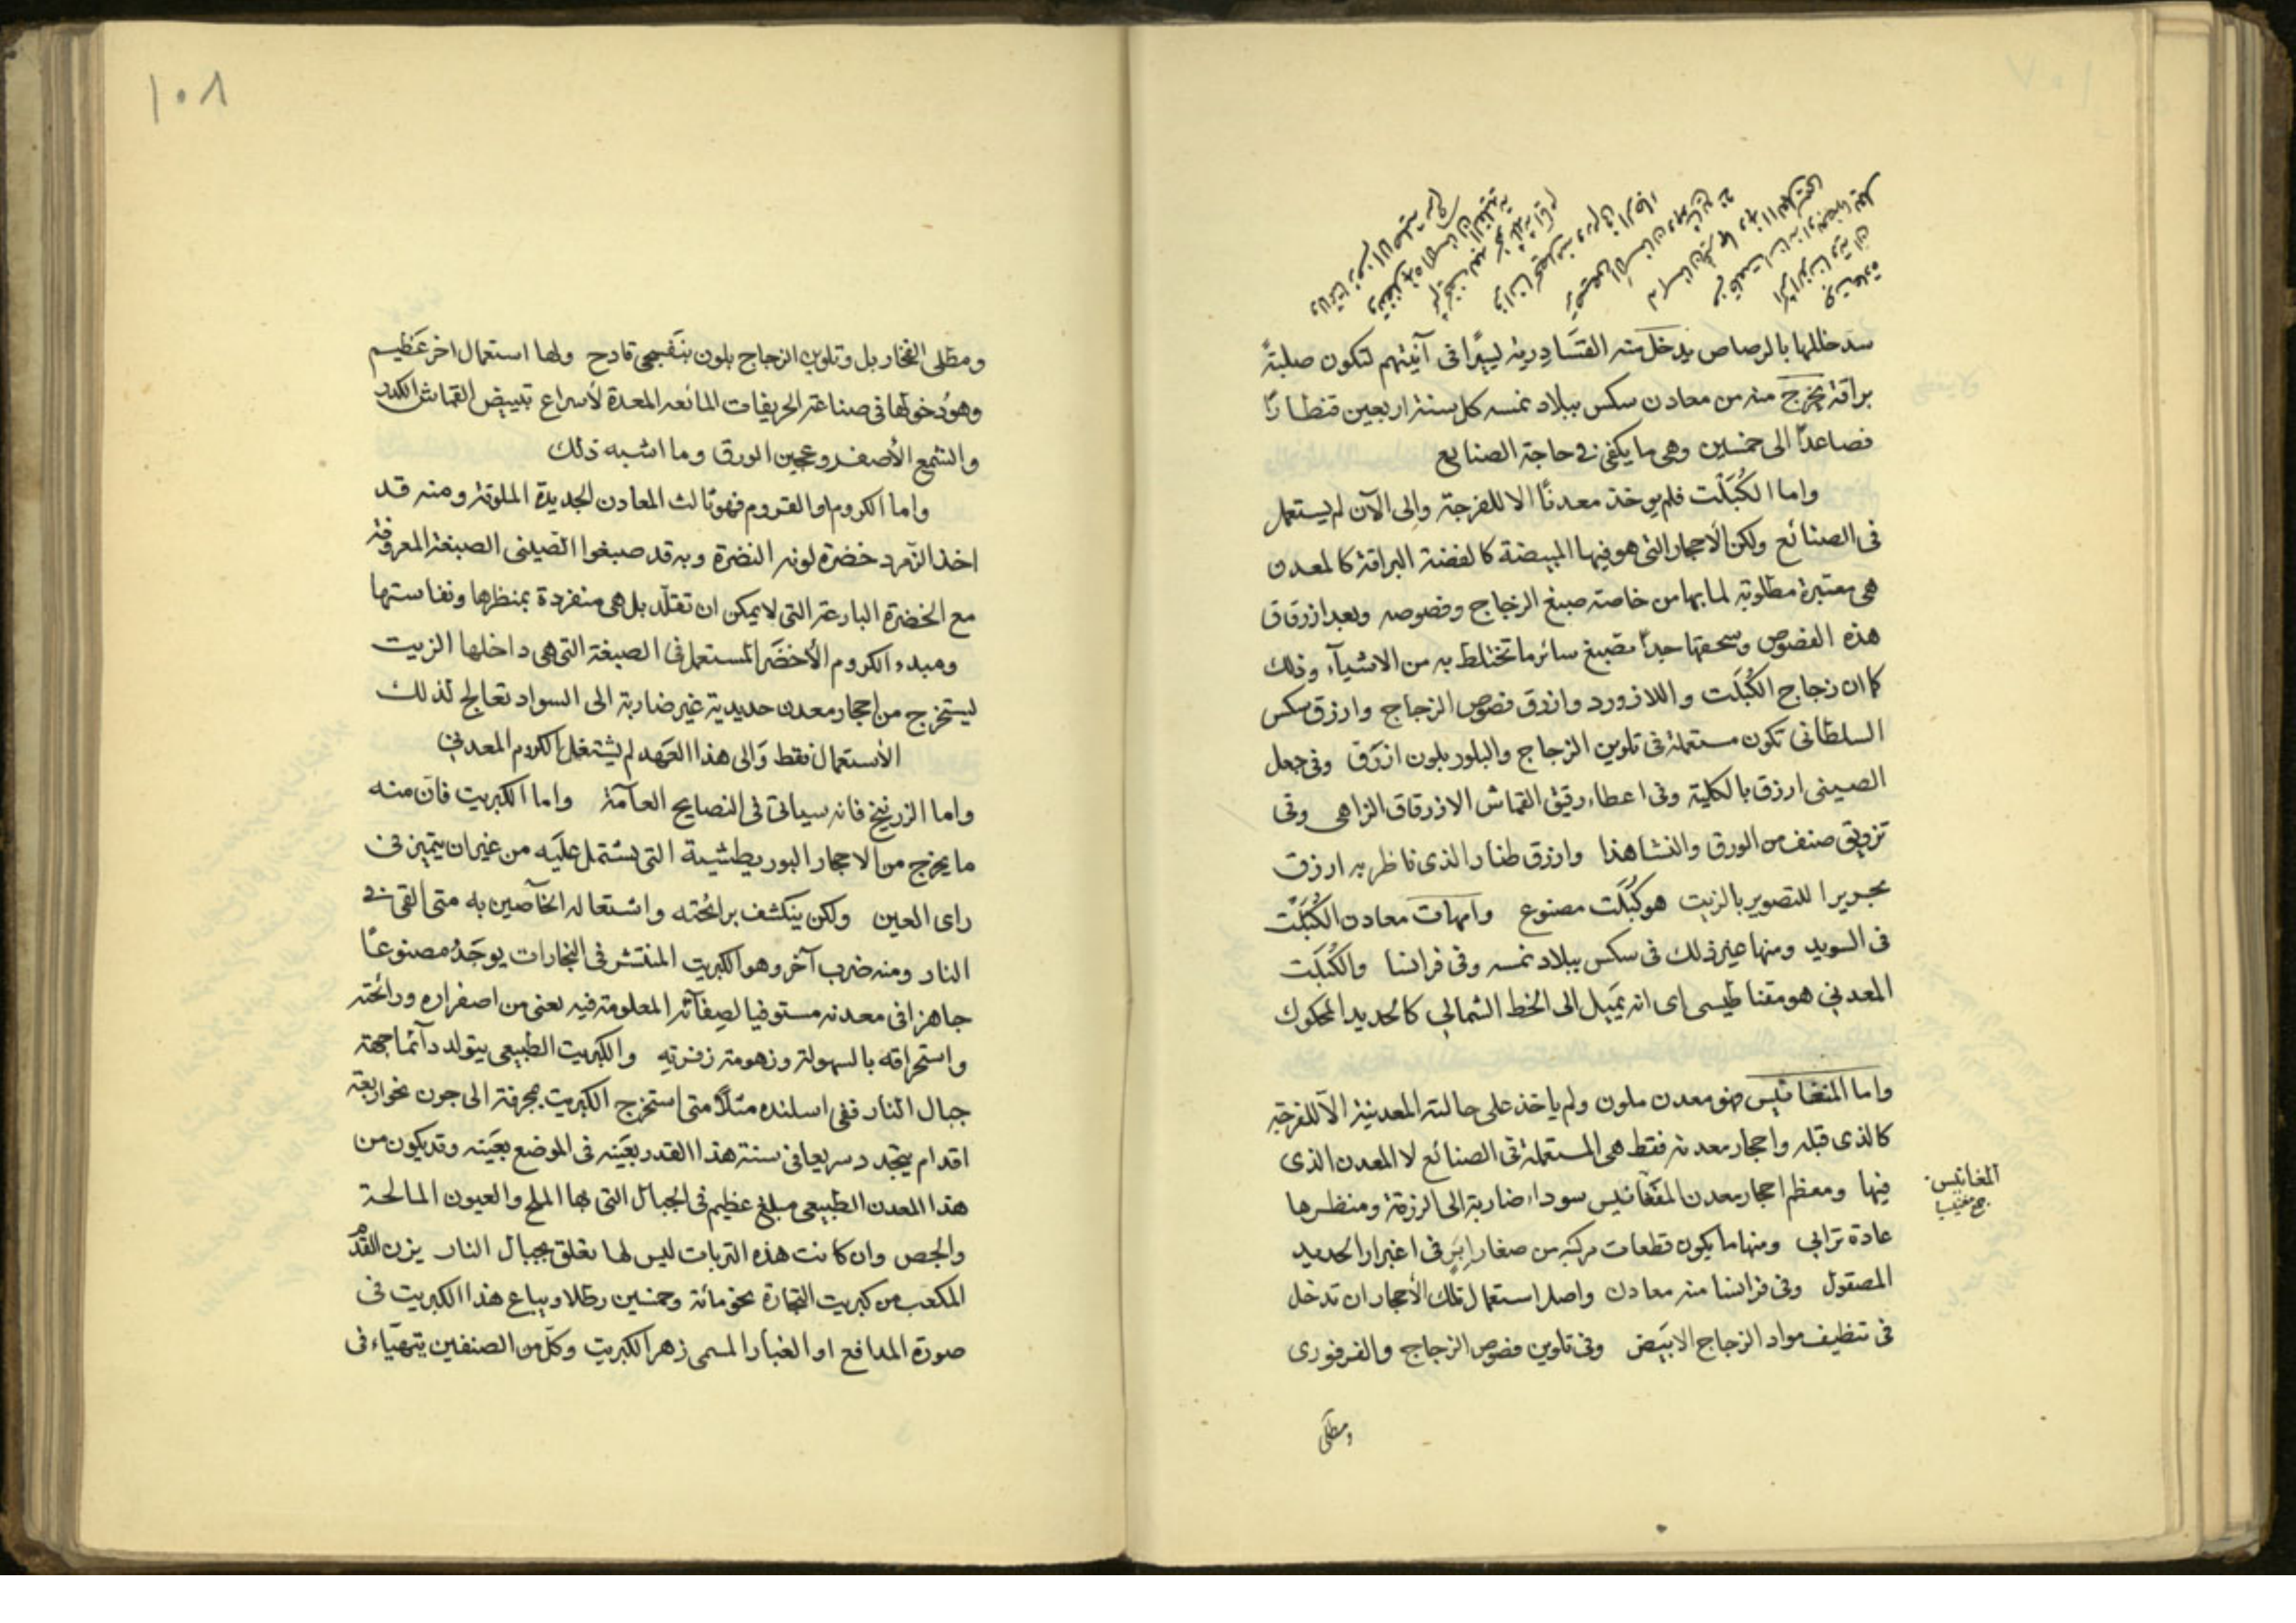 سد خللها بالرصاص يدخل منه القسادرية يسيرًا في آنيتهم لتكون صلبةً
براقة يخرج منه من معادن سكس ببلاد نمسه كل سنة اربعين قنطارًا
فصاعدًا الى خمسين وهى ما يكفى في حاجة الصنايع
واما الكُبَلْت فلم يوخذ معدنًا الا للفرجة وإلى الآن لم يستعمل
فى الصنائع ولكن الأحجار التى هو فيها المبيضة كالفضة البراقة كالمعدن
هى معتبرة مطلوبة لما بها من خاصة صبغ الزجاج وفصوصه وبعد ازرقاق
هذه الفصوص وسحقها جيدًا تصبغ سائر ما تختلط به من الاشيآء وذلك
كما ان زجاج الكُبَلت واللازورد وازرق فصوص الزجاج وازرق سكس
السلطانى تكون مستعملة فى تلوين الزجاج والبلور بلون ازرَق وفى جعل
الصينى ازرق بالكلية وفى اعطاء رقيق القماش الازرقاق الزاهى وفى
تزويق صنف من الورق والنشا هذا وازرق طنار الذى ناظر به ازرق
بحريرا للتصوير بالزيت هو كُبَلت مصنوع وامهات معادن الكُبَلْت
فى السويد ومنها غير ذلك فى سكس ببلاد نمسه وفى فرانسا والكُبَلَت
المعدني هو مقناطيسى اى انه يَمِيل الى الخط الشمالي كالحديد المحكوك
واما المنغانيس فهو معدن ملون ولم ياخذ على حالته المعدنية الآ للفرجة
كالذى قبله واحجار معدنه فقط هى المستعملة فى الصنائع لا المعدن الذى
فيها ومعظم احجار معدن المنغانيس سوداء ضاربة الى الزرقة ومنظرها
المغانيس
عادة ترابي ومنها ما يكون قطعات مركبة من صغار إبَرٍ فى اغبرار الحديد
المصقول وفى فرانسا منه معادن واصل استعمال تلك الأحجار ان تدخل
فى تنظيف مواد الزجاج الابيَض وفى تلوين فصوص الزجاج والفرفورى
ومطلى
١٠٨
ومطلى الفخار بل وتلوين الزجاج بلون بنفسجى قادح ولها استعمال اخر عَظيم
وهو دخولها فى صناعة الحريفات المائعه المعدة لأسراع تبييض القماش الكدد
والشمع الأصفر وعجين الورق وما اشبه ذلك
واما الكروم او القروم فهو ثالث المعادن الجديدة الملونة ومنه قد
اخذ الزّمرد خضرة لونه النضرة وبه قد صبغوا الصينى الصبغة المعروفة
مع الخضرة البارعة التى لا يمكن ان تقلّد بل هى منفردة بمنظرها ونفاستها
ومبدء الكروم الأخضَر المستعمل فى الصبغة التى هى داخلها الزيت
ليستخرج من احجار معدن حديدية غير ضاربة الى السواد تعالج لذلك
الأستعمال فقط وَالى هذا العَهد لم يشتغل الكروم المعدني
واما الزرنيخ فانه سياتى فى النصايح العآمة واما الكبريت فان منه
ما يخرج من الاحجار البوريطشية التى يشتمل عليَه من غير ان يتميز فى
راى العين ولكن ينكشف برائحته واشتعاله الخآصين به متى القى في
النار ومنه ضرب آخر وهو الكبريت المنتشر فى التجارات يوجَدُ مصنوعًا
جاهزا فى معدنه مستوفيا لصِفآته المعلومة فيه يعنى من اصفراره ورائحته
واستحراقه بالسهولة وزهومة زفرتِهِ والكبريت الطبيعى يتولد دآئما جهة
جبال النار ففى اسلنده مثلاً متى استخرج الكبريت بمجرفة الى جون نحو اربعة
اقدام يتجدد سريعا فى سنة هذا القدر بعَينه فى الموضع بعَينه وقد يكون من
هذا المعدن الطبيعى مبلغ عظيم فى الجبال التى بها الملح والعيون المالحة
والجص وان كانت هذه التربات ليس لها تعلق بجبال النار يزن القدم
المكعب من كبريت التجارة نحو مائة وخمسين رطلا ويباع هذا الكبريت فى
صورة المدافع او الغبار المسمى زهر الكبريت وكلّ من الصنفين يتهيّاء فى